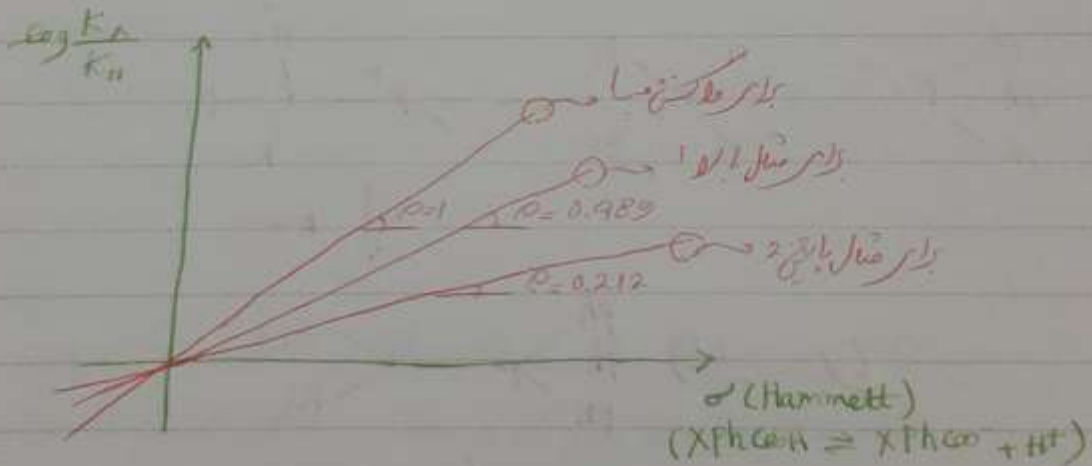 log Kx
KH
برای واکنش مبنا
برای مثال بالا 1
ρ=1
ρ=0.489
برای مثال پایینی 2
ρ=0.212
σ (Hammett)
(XPhCOOH ⇌ XPhCOO⁻ + H⁺)